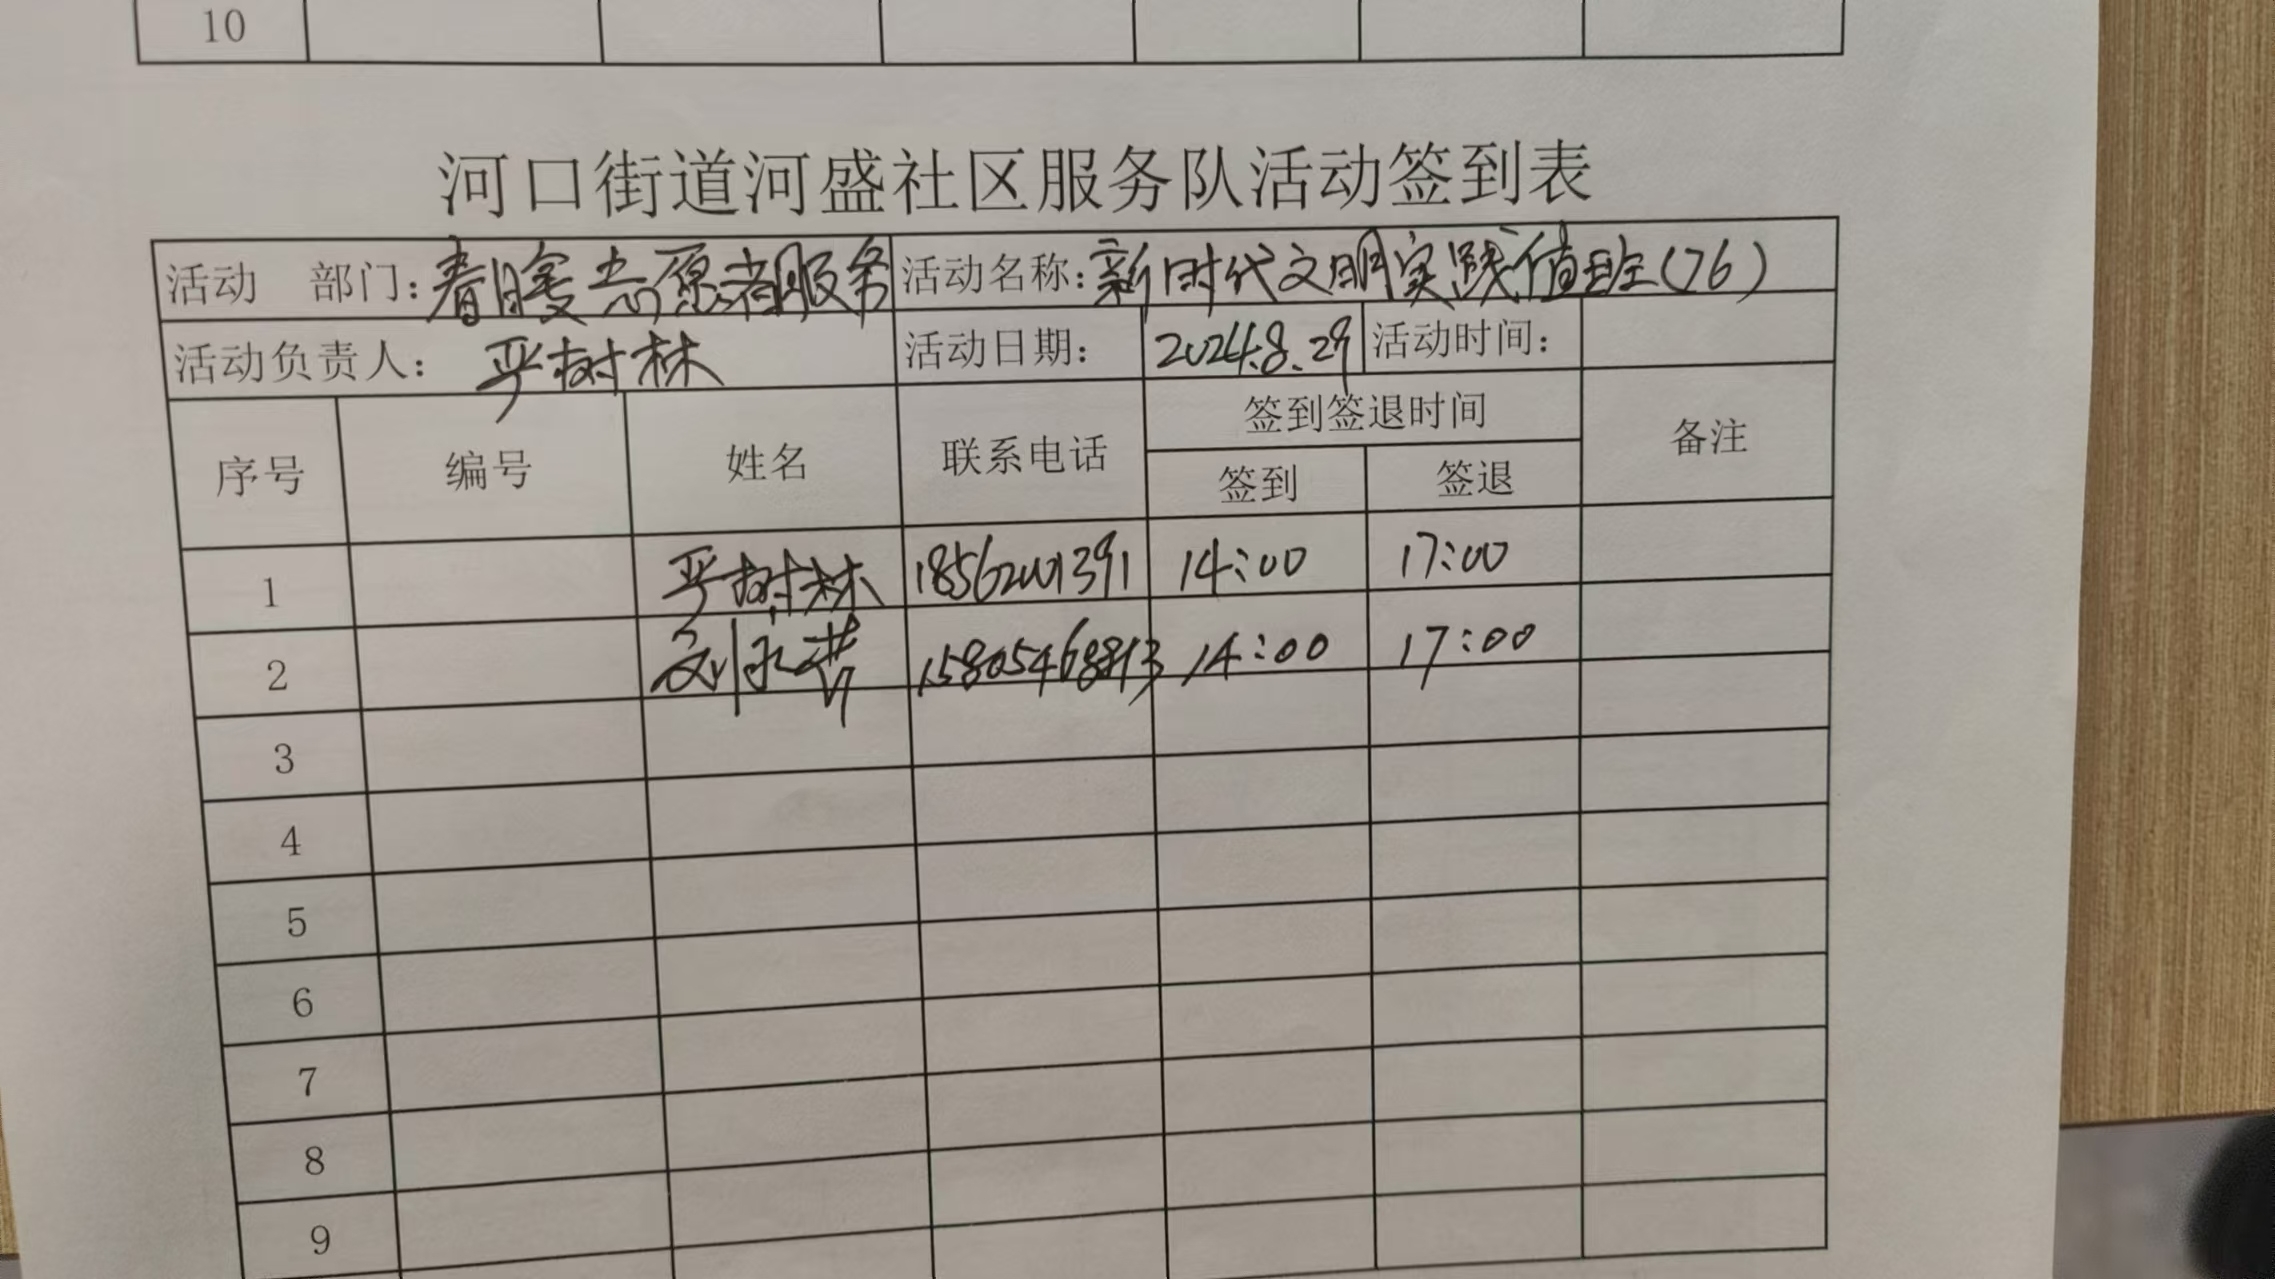 10
河口街道河盛社区服务队活动签到表
活动 部门：春暖志愿者服务 活动名称：新时代文明实践值班（76）
活动负责人：严树林 活动日期： 2024.8.29 活动时间：
序号 编号 姓名 联系电话 签到签退时间 备注
签到 签退
1 严树林 18562001391 14:00 17:00
2 刘永 15805468813 14:00 17:00
3
4
5
6
7
8
9